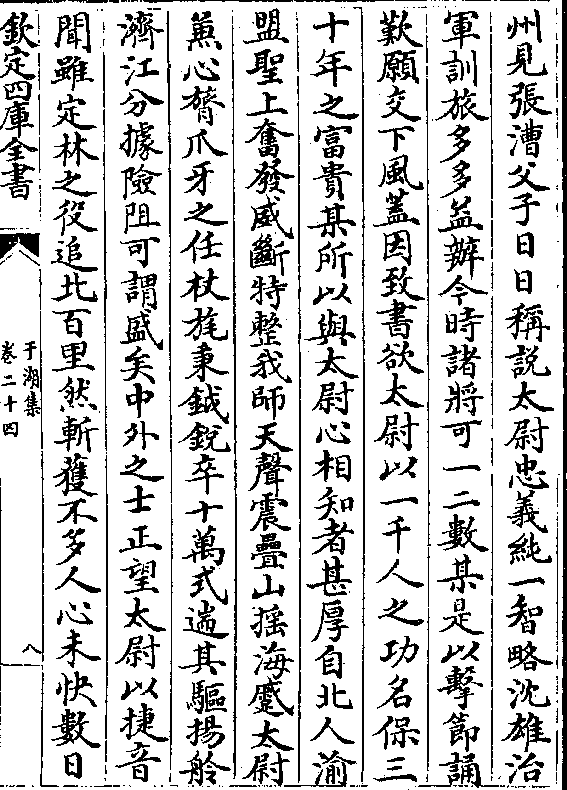 州見張漕父子日日稱説太尉忠義純一智略沈雄治
軍訓旅多多益辦今時諸將可一二數某是以擊節誦
歎願交下風蓋因致書欲太尉以一千人之功名保三
十年之富貴某所以與太尉心相知者甚厚自北人渝
盟聖上奮發威斷特整我師天聲震疊山摇海蹙太尉
蒹心膂爪牙之任杖旄秉鉞銳卒十萬式遄其驅揚舲
濟江分據險阻可謂盛矣中外之士正望太尉以捷音
聞雖定林之役追北百里然斬獲不多人心未快數日
欽定四庫全書
于湖集
卷二十四
八